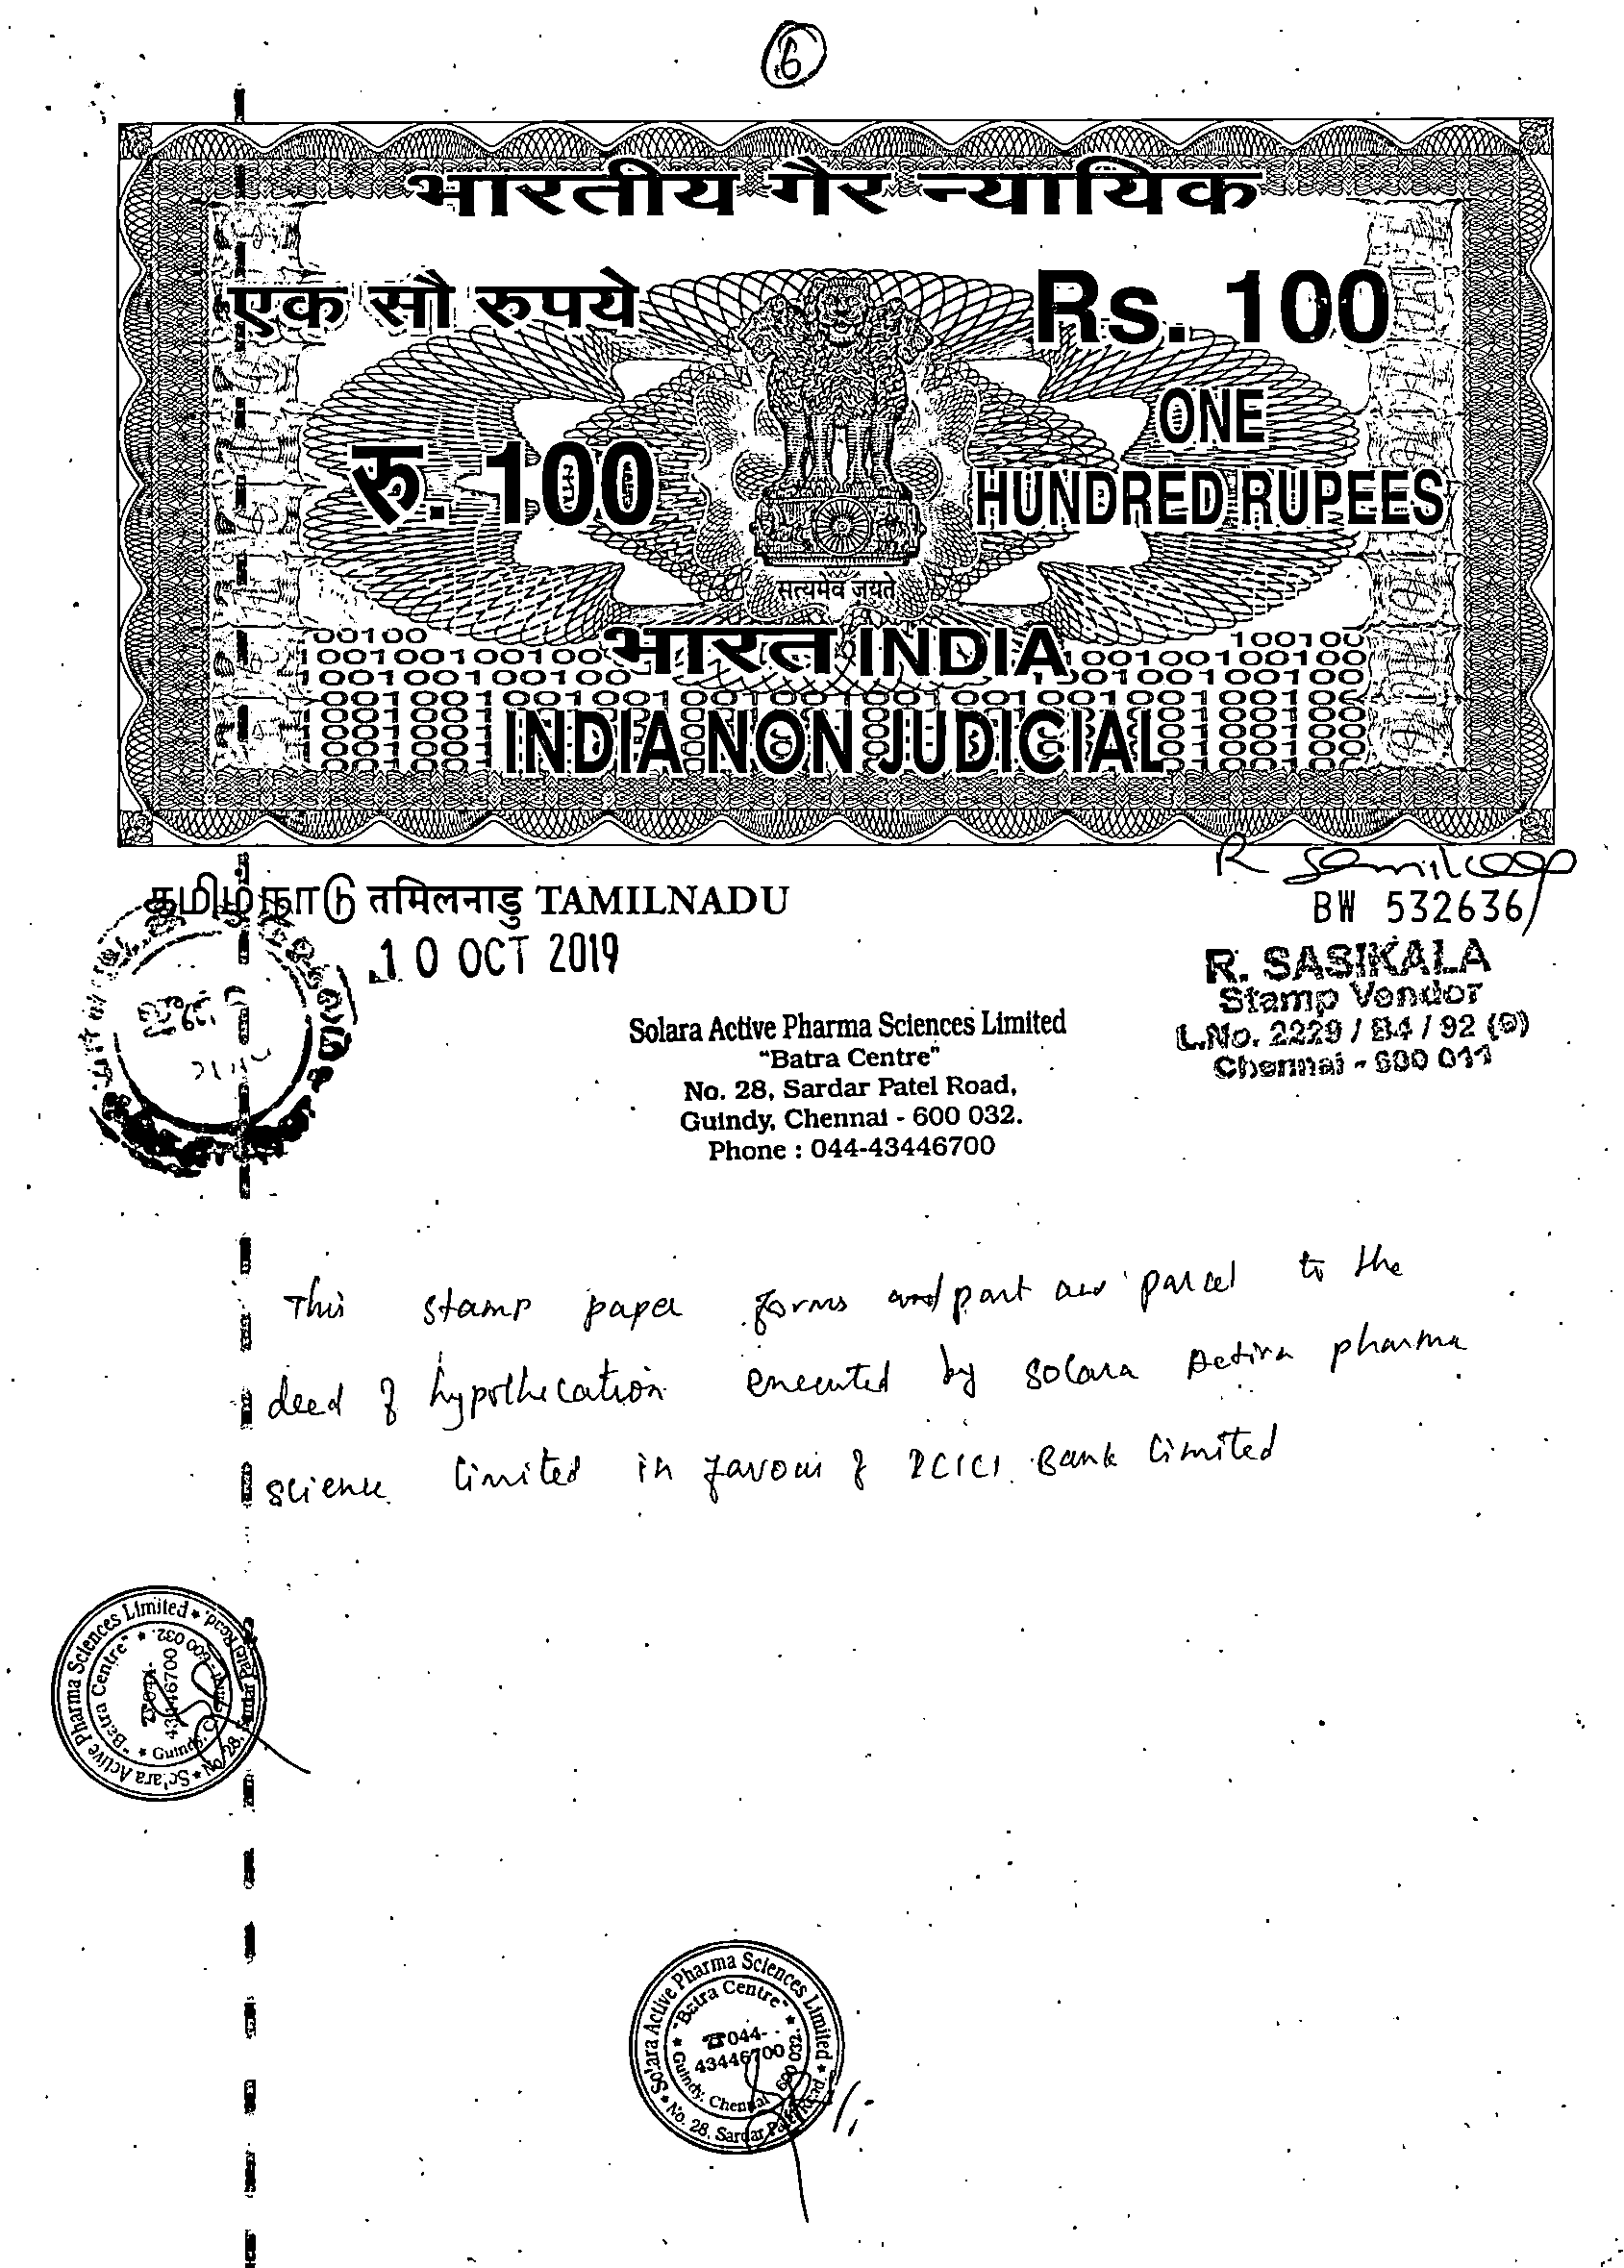 6
भारतीय गैर न्यायिक
एक सौ रुपये
Rs. 100
रु. 100
ONE
HUNDRED RUPEES
सत्यमेव जयते
भारत INDIA
INDIA NON JUDICIAL
தமிழ்நாடு तमिलनाडु TAMILNADU
BW 532636
10 OCT 2019
R. SASIKALA
Stamp Vendor
L.No. 2229 / B4 / 92 (9)
Chennai - 600 011
Solara Active Pharma Sciences Limited
"Batra Centre"
No. 28, Sardar Patel Road,
Guindy, Chennai - 600 032.
Phone : 044-43446700
This stamp paper forms and part and parcel to the
deed of hypothecation executed by Solara Active pharma
science limited in favour of ICICI Bank limited
Solara Active Pharma Sciences Limited * No. 28, Sardar Patel Road,
"Batra Centre" * Guindy, Chennai - 600 032. *
☎ 044-
43446700
Solara Active Pharma Sciences Limited * No. 28, Sardar Patel Road,
"Batra Centre" * Guindy, Chennai 600 032. *
☎ 044-
43446700